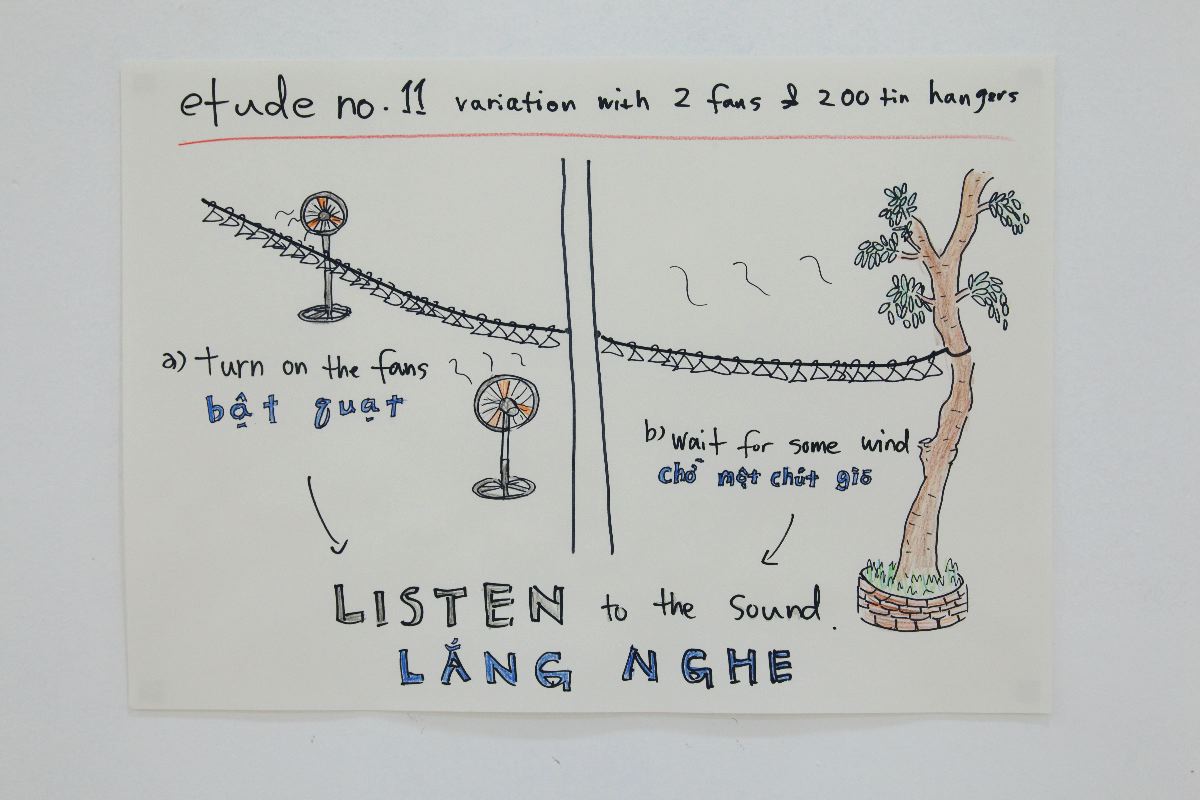 etude no. 11 variation with 2 fans & 200 tin hangers
a) turn on the fans
bật quạt
b) wait for some wind
chờ một chút gió
LISTEN to the sound.
LẮNG NGHE